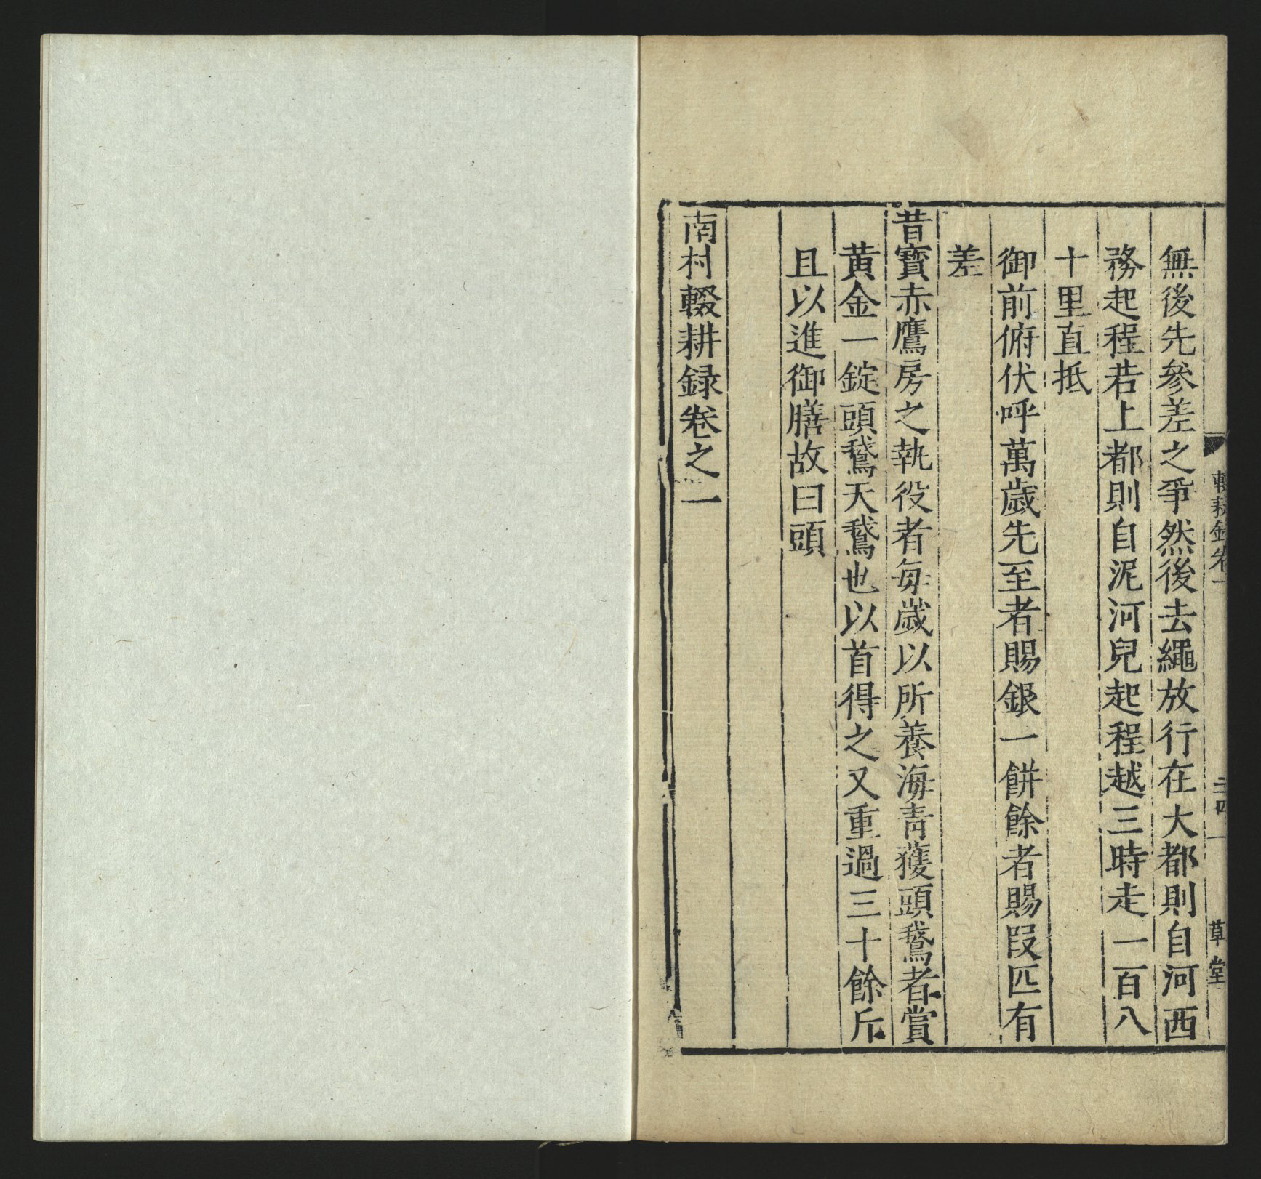 輟耕錄卷一
二十四
草堂
無後先參差之爭然後去繩放行在大都則自河西
務起程若上都則自泥河兒起程越三時走一百八
十里直抵
御前俯伏呼萬歲先至者賜銀一餅餘者賜段匹有
差
昔寶赤鷹房之執役者每歲以所養海青獲頭鵞者賞
黃金一錠頭鵞天鵞也以首得之又重過三十餘斤
且以進御膳故曰頭
南村輟耕録卷之一